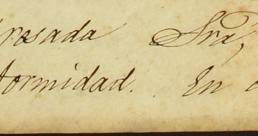 resada Sra,
tormidad. En